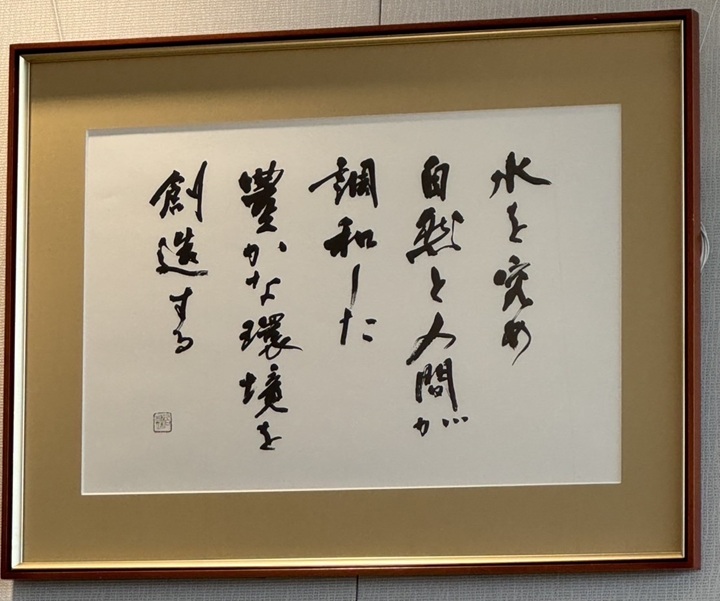 水を究め
自然と人間が
調和した
豊かな環境を
創造する